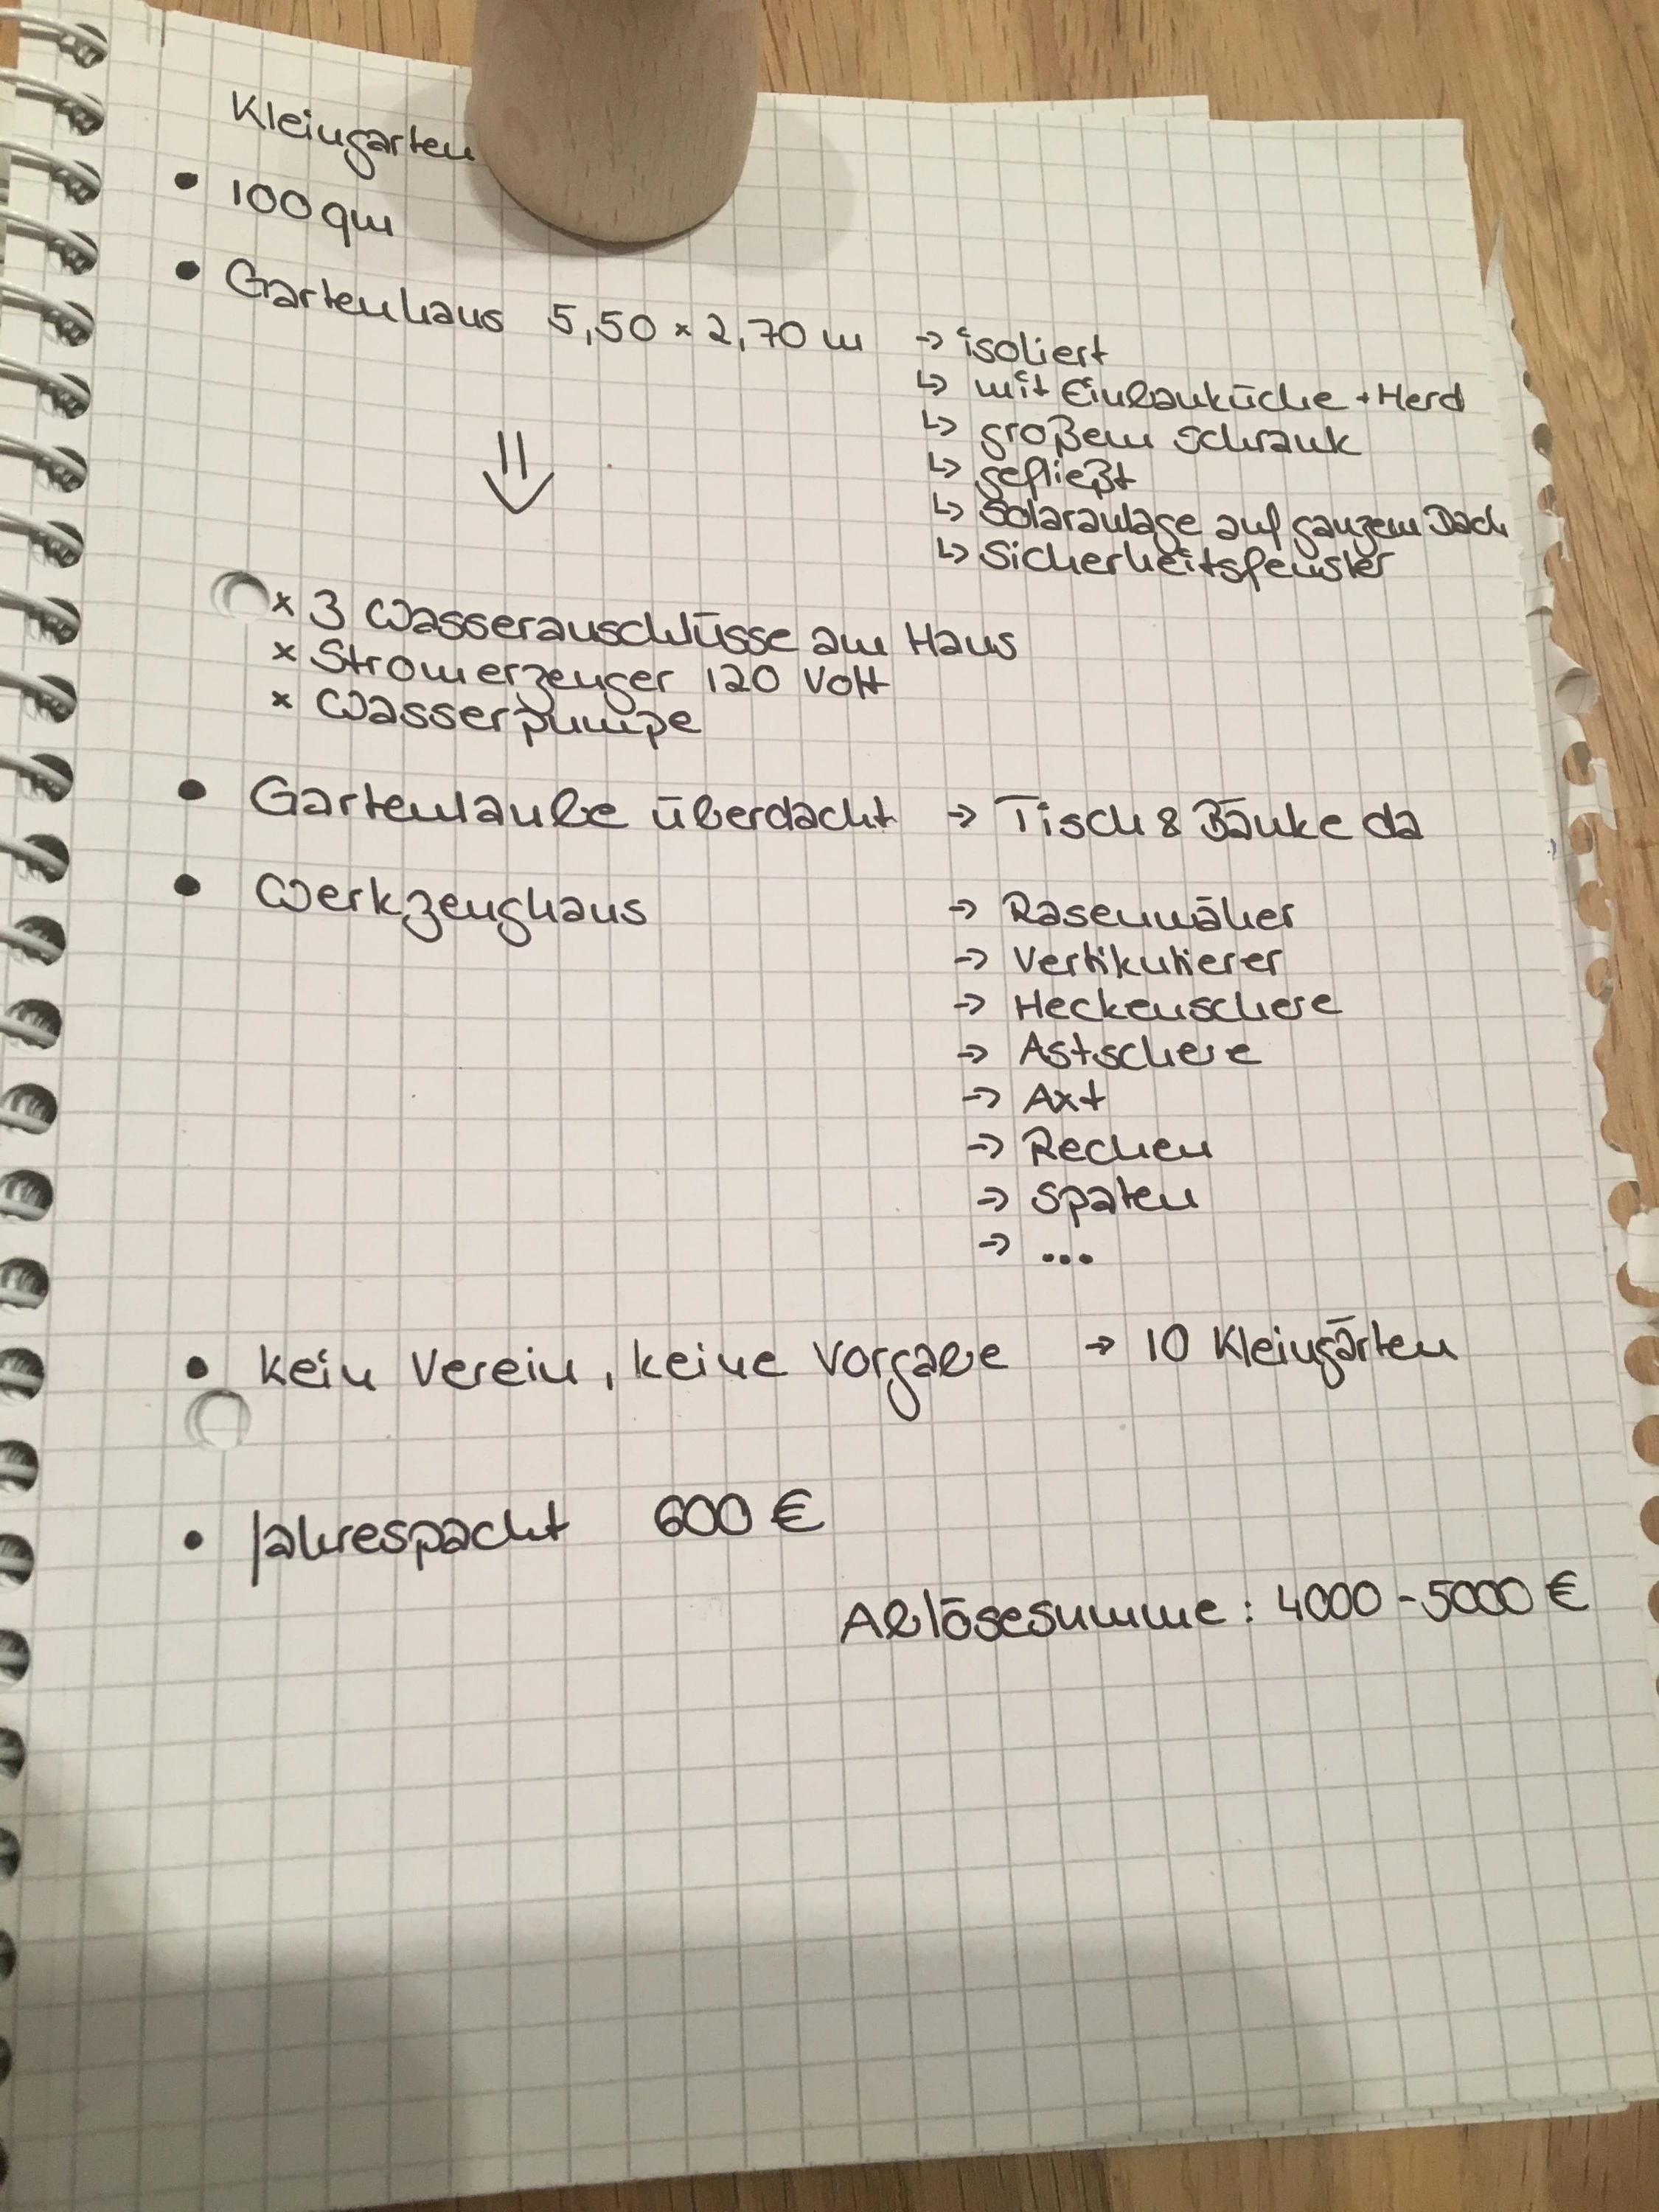 Kleingarten
• 100 qm
• Gartenhaus 5,50 x 2,70 m → isoliert
↳ mit Einbauküche + Herd
↳ großem Schrank
↳ gefließt
↳ Solaranlage auf ganzem Dach
↳ Sicherheitsfenster
⇓
x 3 Wasseranschlüsse am Haus
x Stromerzeuger 120 Volt
x Wasserpumpe
• Gartenlaube überdacht → Tisch & Bänke da
• Werkzeughaus → Rasenmäher
→ Vertikutierer
→ Heckenschere
→ Astschere
→ Axt
→ Rechen
→ Spaten
→ ...
• kein Verein, keine Vorgabe → 10 Kleingärten
• Jahrespacht 600 €
Ablösesumme : 4000 - 5000 €